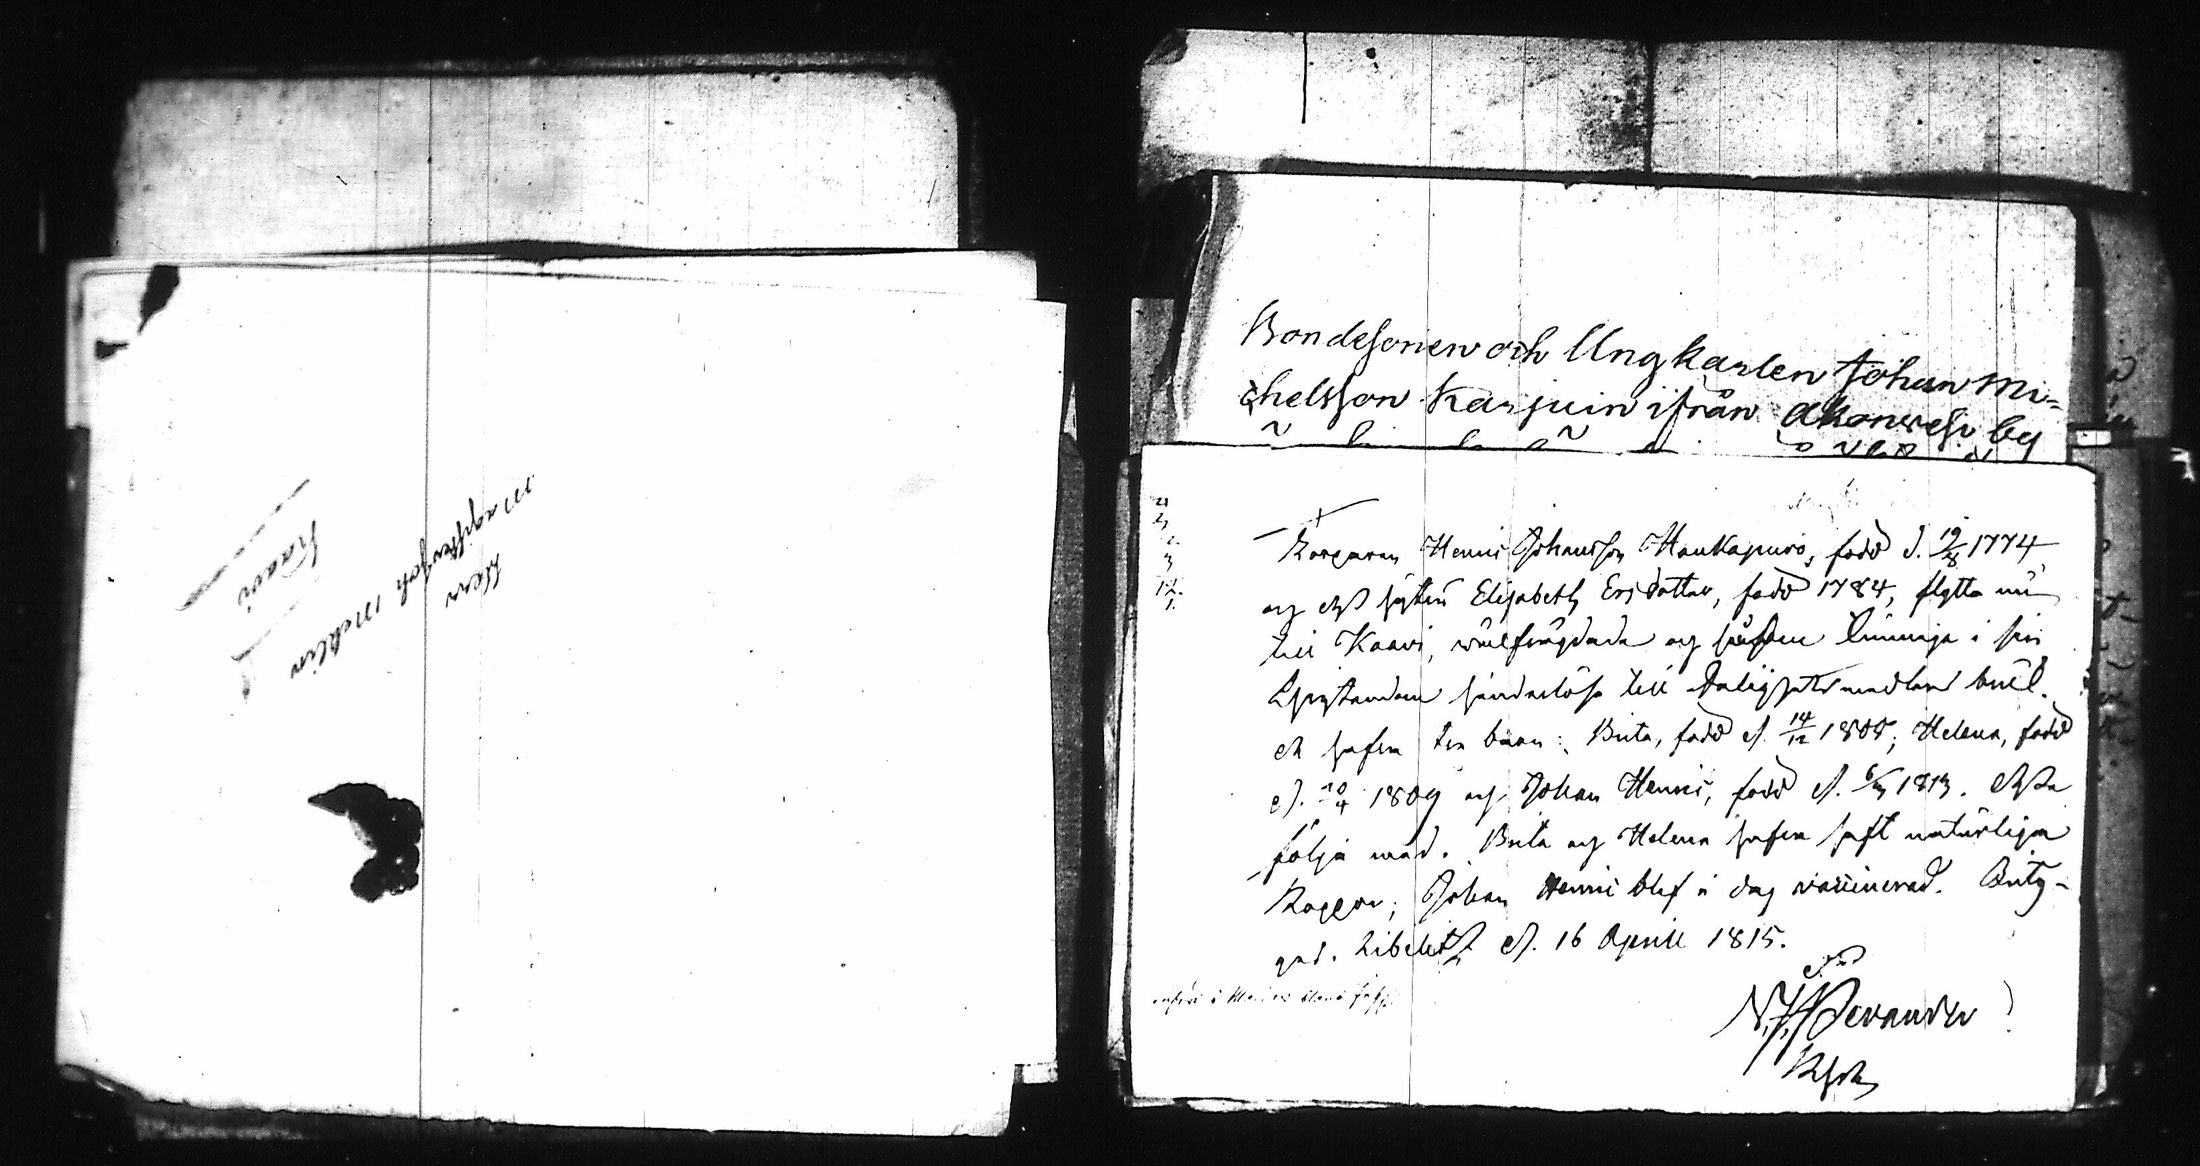 Herr
Magister Joh Mehlin
Kaavi
Bondesonen och Ungkarlen Johan Mi=
chelsson Karjuin ifrån by
Korparen Henric Johansson Haukapuro, född d. 19/8 1774
och dess hustru Elisabeth Ersdotter, född 1784, flytta nu
till Kaavi, välfrägdade och i sin
Christendom till Salighets medlens bruk.
De hafva tre barn: Brita, född d. 14/12 1808; Helena, född
d. 20/4 1809 och Johan Henric, född d. 6/3 1813. Dessa
följa med. Brita och Helena hafva haft naturliga
Koppor; Johan Henric blef i dag vaccinerad. Bety-
gad. Libelitz d. 16 Aprill 1815.